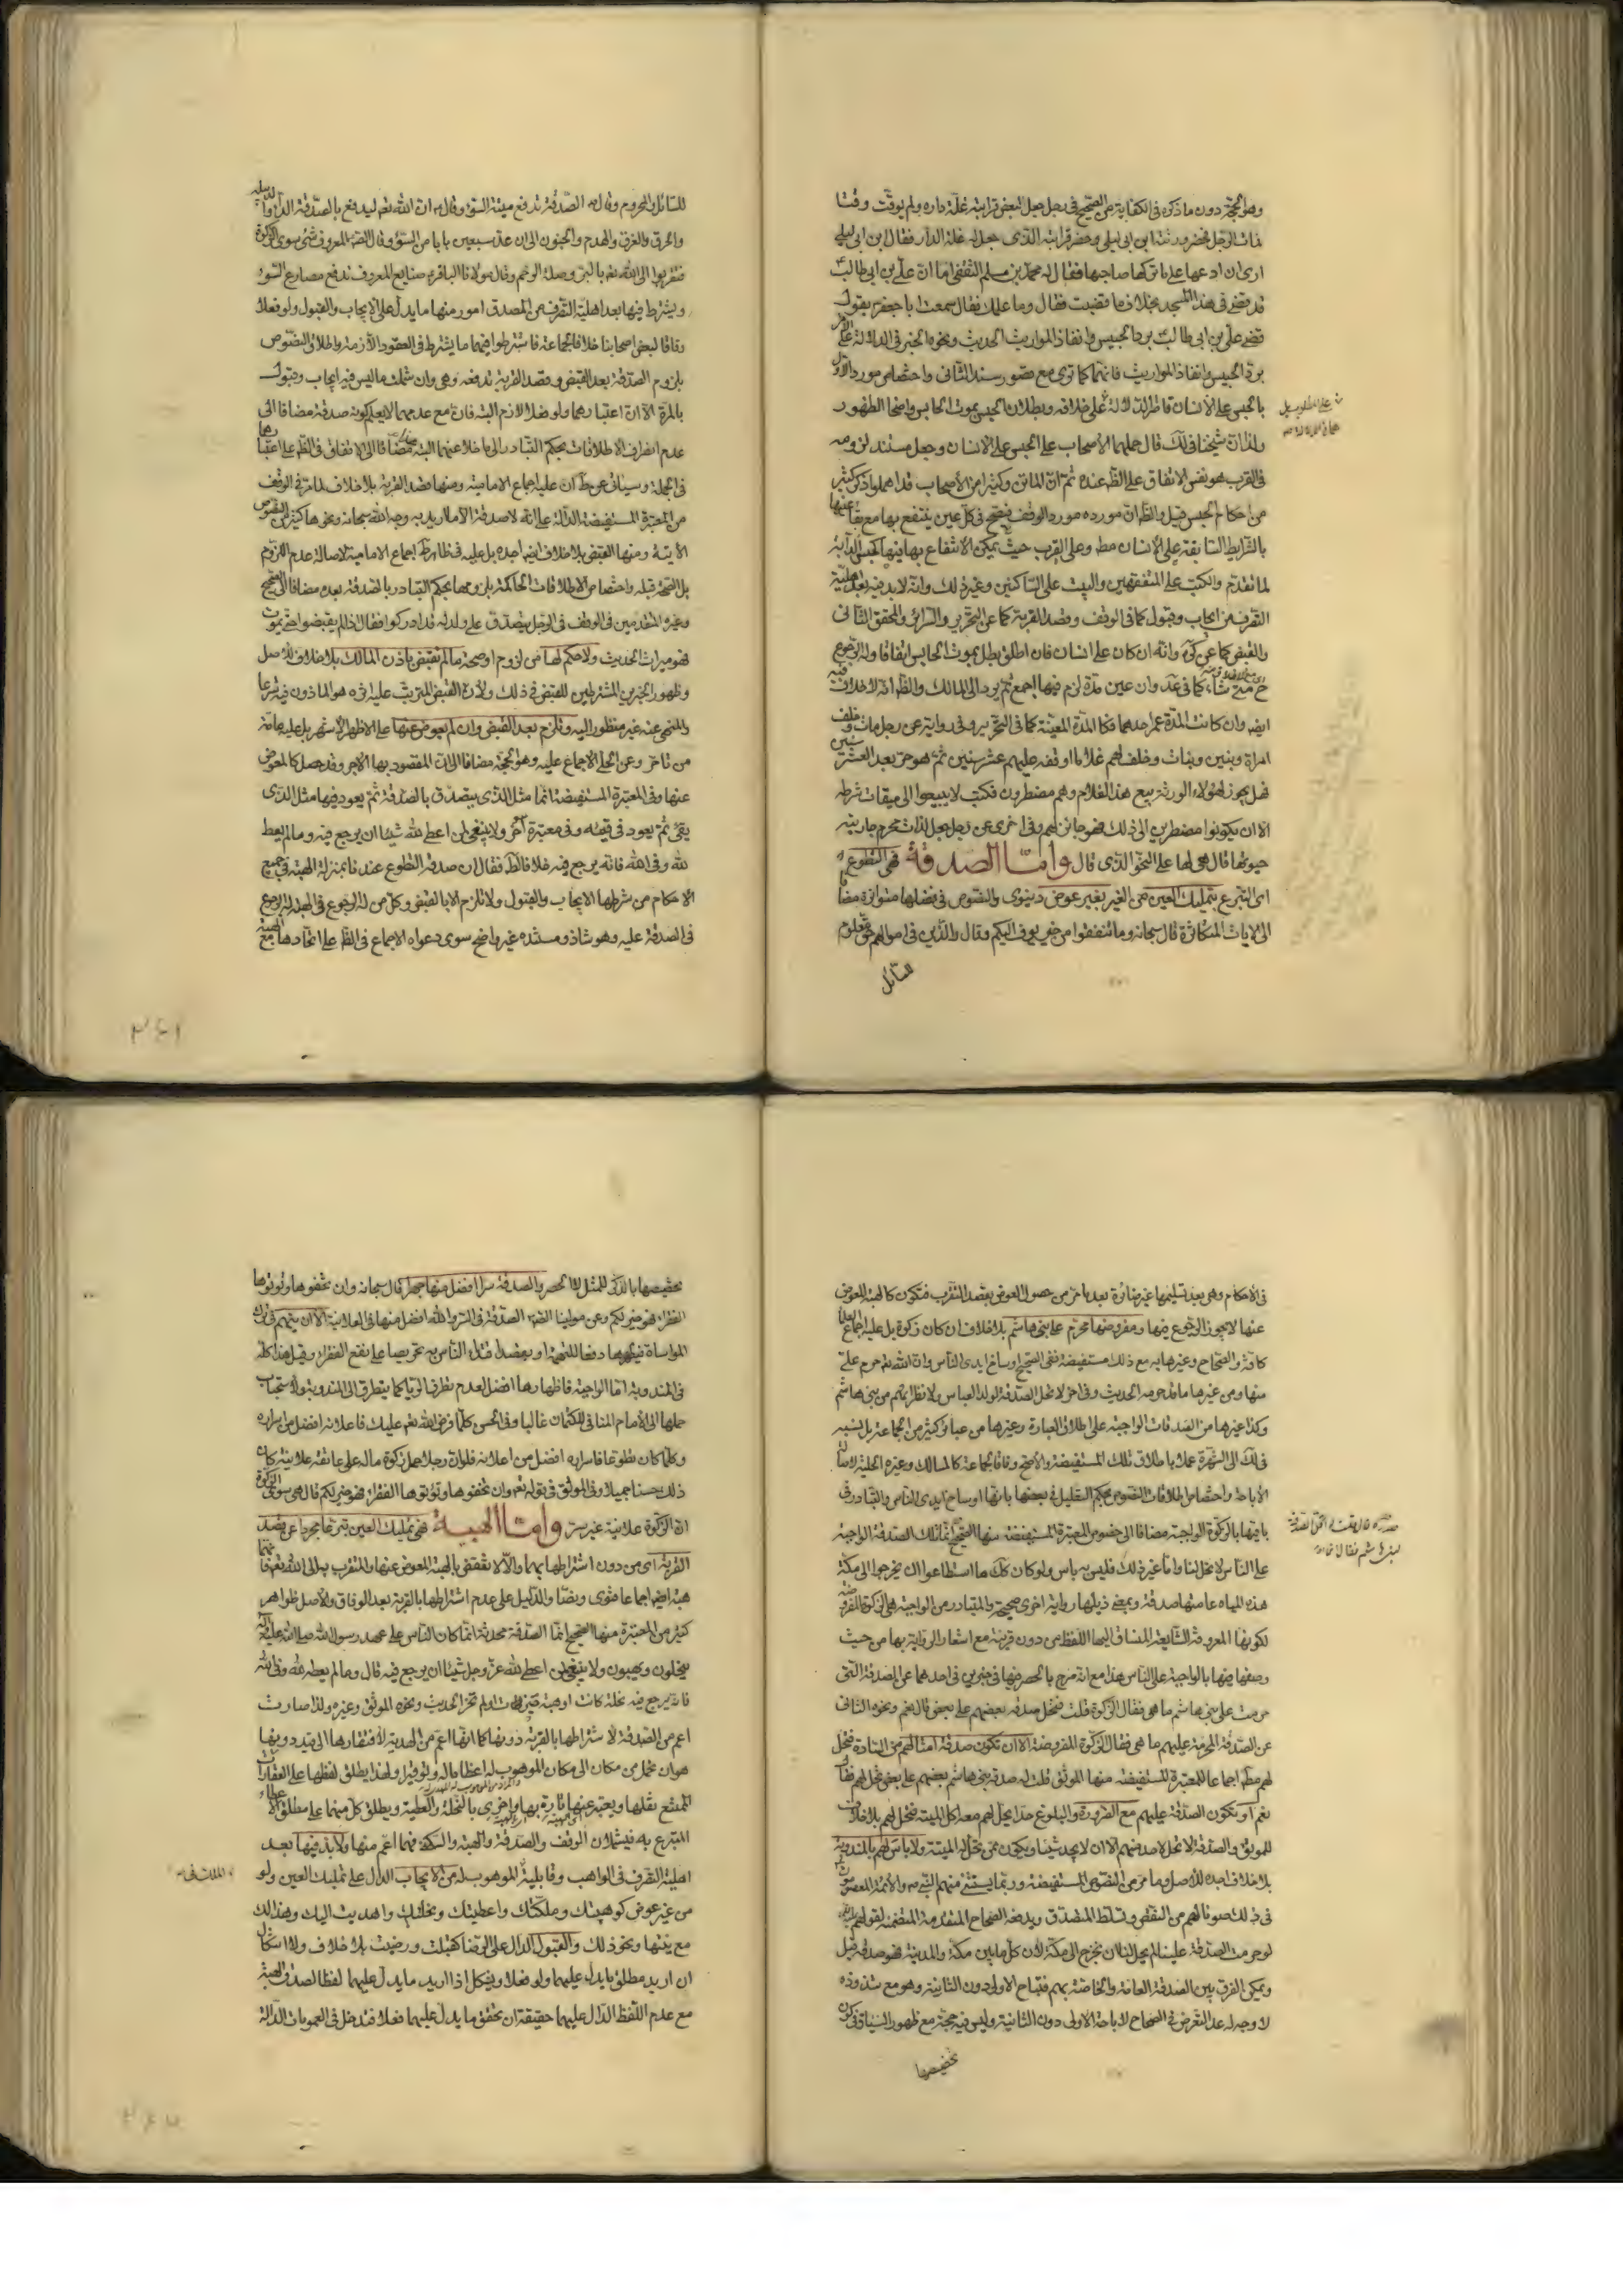 وهو الحجة دون ما ذكره في الكفاية من الصحيح في رجل جعل لبعض قرابته غلة داره ولم يوقت وقتا
فمات الرجل فحضر ورثته ابن ابي ليلى وحضر قرابته الذى جعل له غلة الدار فقال ابن ابي ليلى
ارى ان ادعها على ما تركها صاحبها فقال له محمد بن مسلم الثقفى اما ان علي بن ابي طالب
قد قضى في هذا المسجد بخلاف ما قضيت فقال وما علمك فقال سمعت ابا جعفر يقول
قضى علي بن ابي طالب برد الحبيس وانفاذ المواريث الحديث ونحوه الخبر في الدلالة على
برد الحبيس وانفاذ المواريث فانهما كما ترى مع قصور سند الثانى واختصاص مورد الاول
بالحبس على الانسان قاطر الدلالة على خلافه وبطلان الحبس بموت الحابس واضحا الظهور
ولذا ان شيخنا في لك قال حملهما الاصحاب على الحبس على الانسان وجعل مستند لزومه
في القرب هو نفس الاتفاق على الظ عنده ثم ان الماتن وكثيرا من الاصحاب قد اهملوا ذكر كثير
من احكام الحبس قيل والظ ان مورده مورد الوقف فيصح في كل عين ينتفع بها مع بقاء عينها
بالشرايط السابقة على الانسان مط وعلى القرب حيث يمكن الانتفاع بها فيها كحبس الدابة
لما تقدم والكتب على المتفقهين والبيت على الساكنين وغير ذلك وانه لا بد فيه بعد اهلية
التصرف من ايجاب وقبول كما في الوقف وقصد القربة كما عن التحرير والسرائر والمحقق الثانى
والقبض كما عن كرة وانه ان كان على انسان فان اطلق بطل بموت الحابس اتفاقا وله الرجوع
ح متى شاء كما في عد وان عين مدة لزم فيها اجمع ثم يرد الى المالك والظ انه لا خلاف فيه
ايضا وان كانت المدة عمر احدهما فكالمدة المعينة كما في التحرير وفي رواية عن رجل مات وخلف
امرأة وبنين وبنات وخلف لهم غلاما اوقفه عليهم عشر سنين ثم هو حر بعد العشر سنين
فهل يجوز لهؤلاء الورثة بيع هذا الغلام وهم مضطرون فكتب لا يبيعوا الى ميقات شرطه
الا ان يكونوا مضطرين الى ذلك فهو جائز لهم وفي اخرى عن رجل جعل لذات محرم جاريته
حيوتها قال هي لها على النحو الذى قال واما الصدقة فهى التطوع
اى التبرع بتمليك العين من الغير بغير عوض دنيوى والنصوص في فضلها متواترة مضافا
الى الايات المتكاثرة قال سبحانه وما تنفقوا من خير يوف اليكم وقال والذين في اموالهم حق معلوم
للسائل
للسائل والمحروم وقال الصدقة تدفع ميتة السوء وقال ان الله تعم ليدفع بالصدقة الداء والدبيلة
والحرق والغرق والهدم والجنون الى ان عد سبعين بابا من السوء وقال لصم المعروف شئ سوى الزكوة
فتقربوا الى الله تعم بالبر وصلة الرحم وقال مولانا الباقر صنايع المعروف تدفع مصارع السوء
ويشترط فيها بعد اهلية التصرف من المصدق امور منها ما يدل على الايجاب والقبول ولو فعلا
وفاقا لبعض اصحابنا خلافا لجماعة فاشترطوا فيهما ما يشترط في العقود اللازمة واطلاق النصوص
بلزوم الصدقة بعد القبض وقصد القربة تدفعه وهي وان شملت ما ليس فيه ايجاب وقبول
بالمرة الا ان اعتبارهما ولو فعلا لازم البتة فان مع عدمهما لا يعلم كونه صدقة مضافا الى
عدم انصراف الاطلاقات بحكم التبادر الى ما خلا عنهما البتة مضافا الى الاتفاق في الظ على اعتبارهما
في الجملة وسيأتى عن ط ان عليه اجماع الامامية ومنها قصد القربة بلا خلاف لما مر في الوقف
من المعتبرة المستفيضة الدالة على انه لا صدقة الا ما اريد به وجه الله سبحانه ونحوها كثير من النصوص
الاتية ومنها القبض بلا خلاف ايضا اجده بل عليه في ظاهر ط اجماع الامامية لاصالة عدم اللزوم
بل الصحة قبله واختصاص الاطلاقات الحاكمة بلزومها بحكم التبادر بالصدقة بعده مضافا الى الصحيح
وغيره المتقدمين في الوقف في الرجل يتصدق على ولد له قد ادركوا فقال اذا لم يقبضوا حتى يموت
فهو ميراث الحديث ولا حكم لها من لزوم او صحة ما لم تقبض باذن المالك بلا خلاف للاصل
وظهور الخبرين المشترطين للقبض في ذلك ولان القبض المترتب عليه اثره هو الماذون فيه شرعا
والمنهى عنه غير منظور اليه وتلزم بعد القبض وان لم يعوض عنها على الاظهر الاشهر بل عليه عامة
من تاخر وعن الحلى الاجماع عليه وهو الحجة مضافا الى ان المقصود بها الاجر وقد حصل كالمعوض
عنها وفي المعتبرة المستفيضة انما مثل الذى يتصدق بالصدقة ثم يعود فيها مثل الذى
يقئ ثم يعود في قيئه وفي معتبرة اخر ولا ينبغي لمن اعطى لله شيئا ان يرجع فيه وما لم يعط
لله وفي الله فانه يرجع فيه خلافا لط فقال ان صدقة التطوع عندنا بمنزلة الهبة في جميع
الاحكام من شرطها الايجاب والقبول ولا تلزم الا بالقبض وكل من له الرجوع في الهبة له الرجوع
في الصدقة عليه وهو شاذ ومستنده غير واضح سوى دعواه الاجماع في الظ على اتحادها مع الهبة
٣٤١
في الاحكام وهي بعد تسليمها غير ضائرة بعد ما مر من حصول العوض بقصد التقرب فتكون كالهبة المعوض
عنها لا يجوز الرجوع فيها ومفروضها محرم على بني هاشم بلا خلاف ان كان زكوة بل عليه اجماع العلماء
كافة والصحاح وغيرها به مع ذلك مستفيضة ففي الصحيح اوساخ ايدى الناس وان الله تعم حرم على
منها ومن غيرها ما قد حرمه الحديث وفي اخر لا تحل الصدقة لولد العباس ولا نظرائهم من بني هاشم
وكذا غيرها من الصدقات الواجبة على اطلاق العبارة وغيرها من عبائر كثير من الجماعة بل نسبه
في لك الى الشهرة عملا باطلاق تلك المستفيضة والاصح وفاقا لجماعة كالمسالك وغيره الحلية لاصالة
الاباحة واختصاص اطلاقات النصوص بحكم التعليل في بعضها بانها اوساخ ايدى الناس والتبادر في
باقيها بالزكوة الواجبة مضافا الى خصوص المعتبرة المستفيضة منها الصحيح انما تلك الصدقة الواجبة
على الناس لا تحل لنا واما غير ذلك فليس به باس ولو كان كك ما استطاعوا ان يخرجوا الى مكة
هذه المياه عامتها صدقة وبمعنى ذيلها رواية اخرى صحيحة والمتبادر من الواجبة هي الزكوة المفروضة
لكونها المعروفة الشايعة المنساق اليها اللفظ من دون قرينة مع اشعار الرواية بها من حيث
وصفها فيها بالواجبة على الناس هذا مع انه صرح بالحصر فيها في خبرين في احدهما عن الصدقة التى
حرمت على بني هاشم ما هي فقال الزكوة قلت فتحل صدقة بعضهم على بعض قال نعم ونحوه الثانى
عن الصدقة المحرمة عليهم ما هي فقال الزكوة المفروضة الا ان تكون صدقة امثالهم من السادة فتحل
لهم مط اجماعا للمعتبرة المستفيضة منها الموثق قلت له صدقة بني هاشم بعضهم على بعض تحل لهم فقال
نعم او تكون الصدقة عليهم مع الضرورة والبلوغ حدا يحل لهم معه اكل الميتة فتحل لهم بلا خلاف
للموثق والصدقة لا تحل لاحد منهم الا ان لا يجد شيئا ويكون ممن تحل له الميتة ولا باس لهم بالمندوبة
بلا خلاف اجده للاصل وما مر من النصوص المستفيضة وربما يستثنى منهم النبى ص والائمة المعصومون
في ذلك صونا لهم من النقص وتسلط المتصدق ويدفعه الصحاح المتقدمة المتضمنة لقولهم
لو حرمت الصدقة علينا لم يحل لنا ان نخرج الى مكة لان كل ما بين مكة والمدينة فهو صدقة قيل
ويمكن الفرق بين الصدقة العامة والخاصة بهم فتباح الاولى دون الثانية وهو مع شذوذه
لا وجه له عدا التعرض في الصحاح لاباحة الاولى دون الثانية وليس فيه حجة مع ظهور السياق في كون
تخصيصها
تخصيصها بالذكر للمثل لا للحصر والصدقة سرا افضل منها جهرا قال سبحانه وان تخفوها وتؤتوها
الفقراء فهو خير لكم وعن مولينا الصم الصدقة في السر والله افضل منها في العلانية الا ان يتهم في ترك
المواساة فيظهرها دفعا للتهمة او يقصد اقتداء الناس به تحريصا على نفع الفقراء وقيل هذا كله
في المندوبة اما الواجبة فاظهارها افضل لعدم تطرق الريا كما يتطرق الى المندوبة ولاستحباب
حملها الى الامام المنافى للكتمان غالبا وفي الحسن كلما فرض الله تعم عليك فاعلانه افضل من اسراره
وكلما كان تطوعا فاسراره افضل من اعلانه فلو ان رجلا حمل زكوة ماله على عاتقه علانية كان
ذلك حسنا جميلا وفي الموثق في قوله تعم وان تخفوها وتؤتوها الفقراء فهو خير لكم قال هي سوى الزكوة
ان الزكوة علانية غير سر واما الهبة فهي تمليك العين تبرعا مجردا عن قصد
القربة اى من دون اشتراطها بهما والا لانتقض بالهبة المعوض عنها والمتقرب بها الى الله تعم فانهما
هبة ايضا اجماعا فتوى ونصا والدليل على عدم اشتراطها بالقربة بعد الوفاق والاصل ظواهر
كثير من المعتبرة منها الصحيح انما الصدقة محدثة انما كان الناس على عهد رسول الله صلى الله عليه واله
ينحلون ويهبون ولا ينبغى لمن اعطى لله عز وجل شيئا ان يرجع فيه قال وما لم يعطه لله وفي الله
فانه يرجع فيه نحلة كانت او هبة حيزت او لم تحز الحديث ونحوه الموثق وغيره ولذا صارت
اعم من الصدقة لاشتراطها بالقربة دونها كما انها اعم من الهدية لافتقارها الى قيد دونها
هو ان تحمل من مكان الى مكان الموهوب له اعظاما له وتوقيرا ولهذا لا يطلق لفظها على العقارات
الممتنع نقلها ويعبر عنها تارة بها واخرى بالنحلة والعطية ويطلق كل منهما على مطلق الاعطاء
المتبرع به فيشملان الوقف والصدقة والهبة والسكنى فهما اعم منها ولا بد فيها بعد
اهلية التصرف في الواهب وقابلية الموهوب له من الايجاب الدال على تمليك العين ولو
من غير عوض كوهبتك وملكتك واعطيتك ونحلتك واهديت اليك وهذا لك
مع نيتها ونحو ذلك والقبول الدال على الرضا كقبلت ورضيت بلا خلاف ولا اشكال
ان اريد مطلق ما يدل عليهما ولو فعلا ويشكل اذا اريد ما يدل عليهما لفظا لصدق الهبة
مع عدم اللفظ الدال عليهما حقيقة ان تحقق ما يدل عليهما فعلا فتدخل في العمومات الدالة